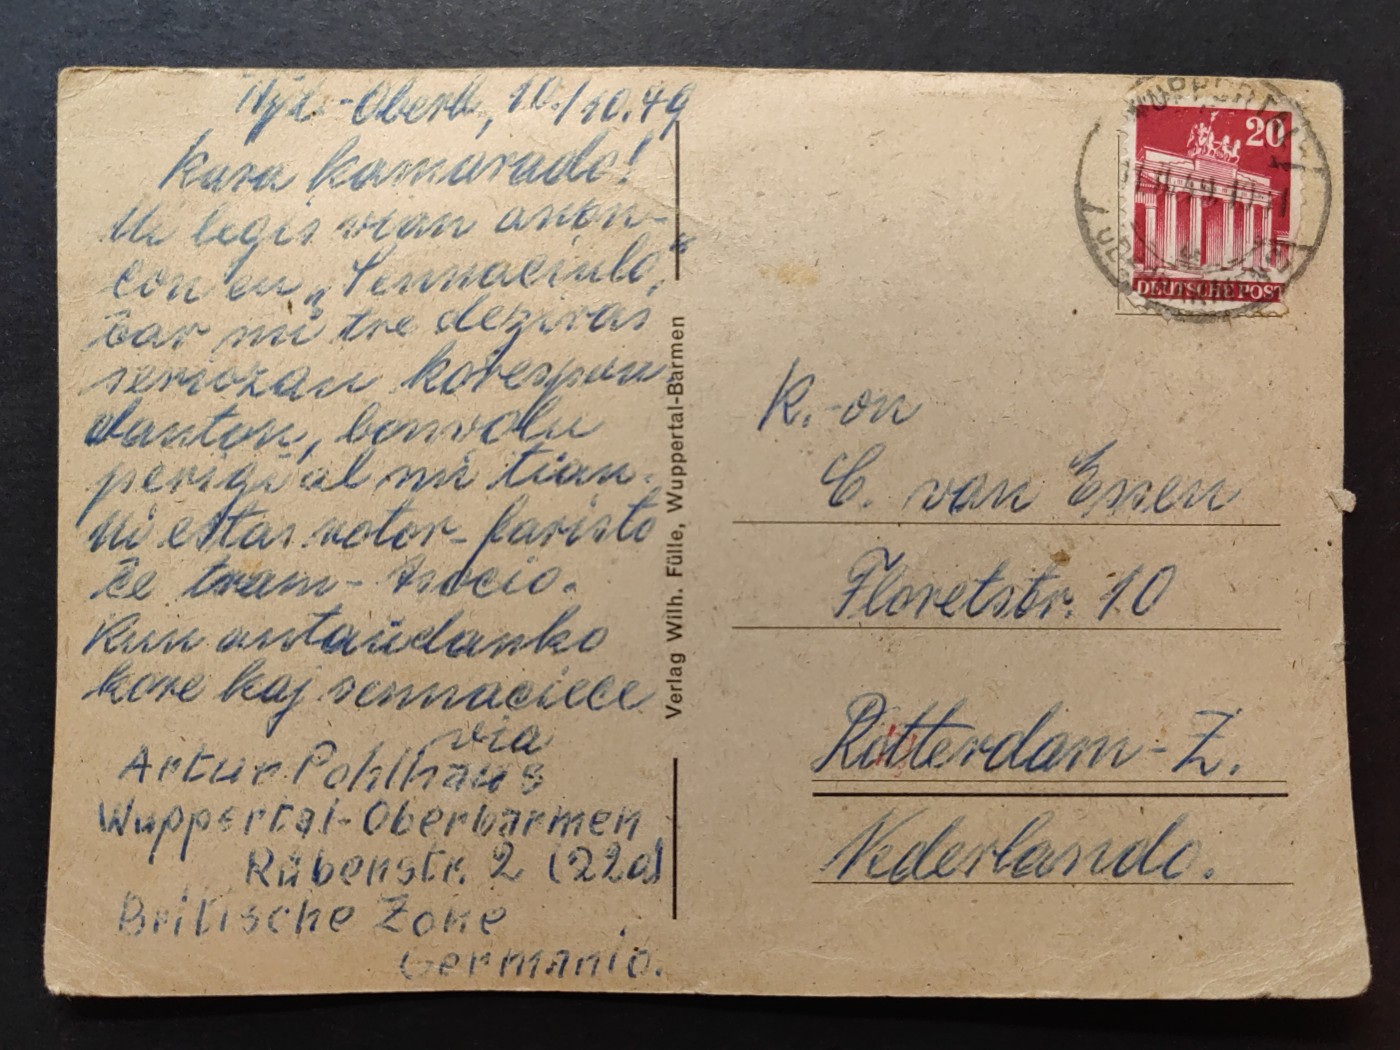 -Oberb., 10./10.49
Kara kamarado!
Mi legis vian anon-
con en „Sennaciulo,“
ĉar mi tre deziras
seriozan korespon-
danton, bonvolu
skribi al mi tian.
Mi estas motor-
ĉe tram-
Kun antaŭdanko
kore kaj sennaciece
via
Artur Pohlhaus
Wuppertal-Oberbarmen
Rübenstr. 2 (22a)
Britische Zone
Germanio.
Verlag Wilh. Fülle, Wuppertal-Barmen
20
DEUTSCHE POST
WUPPERTAL
K.-on
C. van Essen
Floretstr. 10
Rotterdam-Z.
Nederlando.